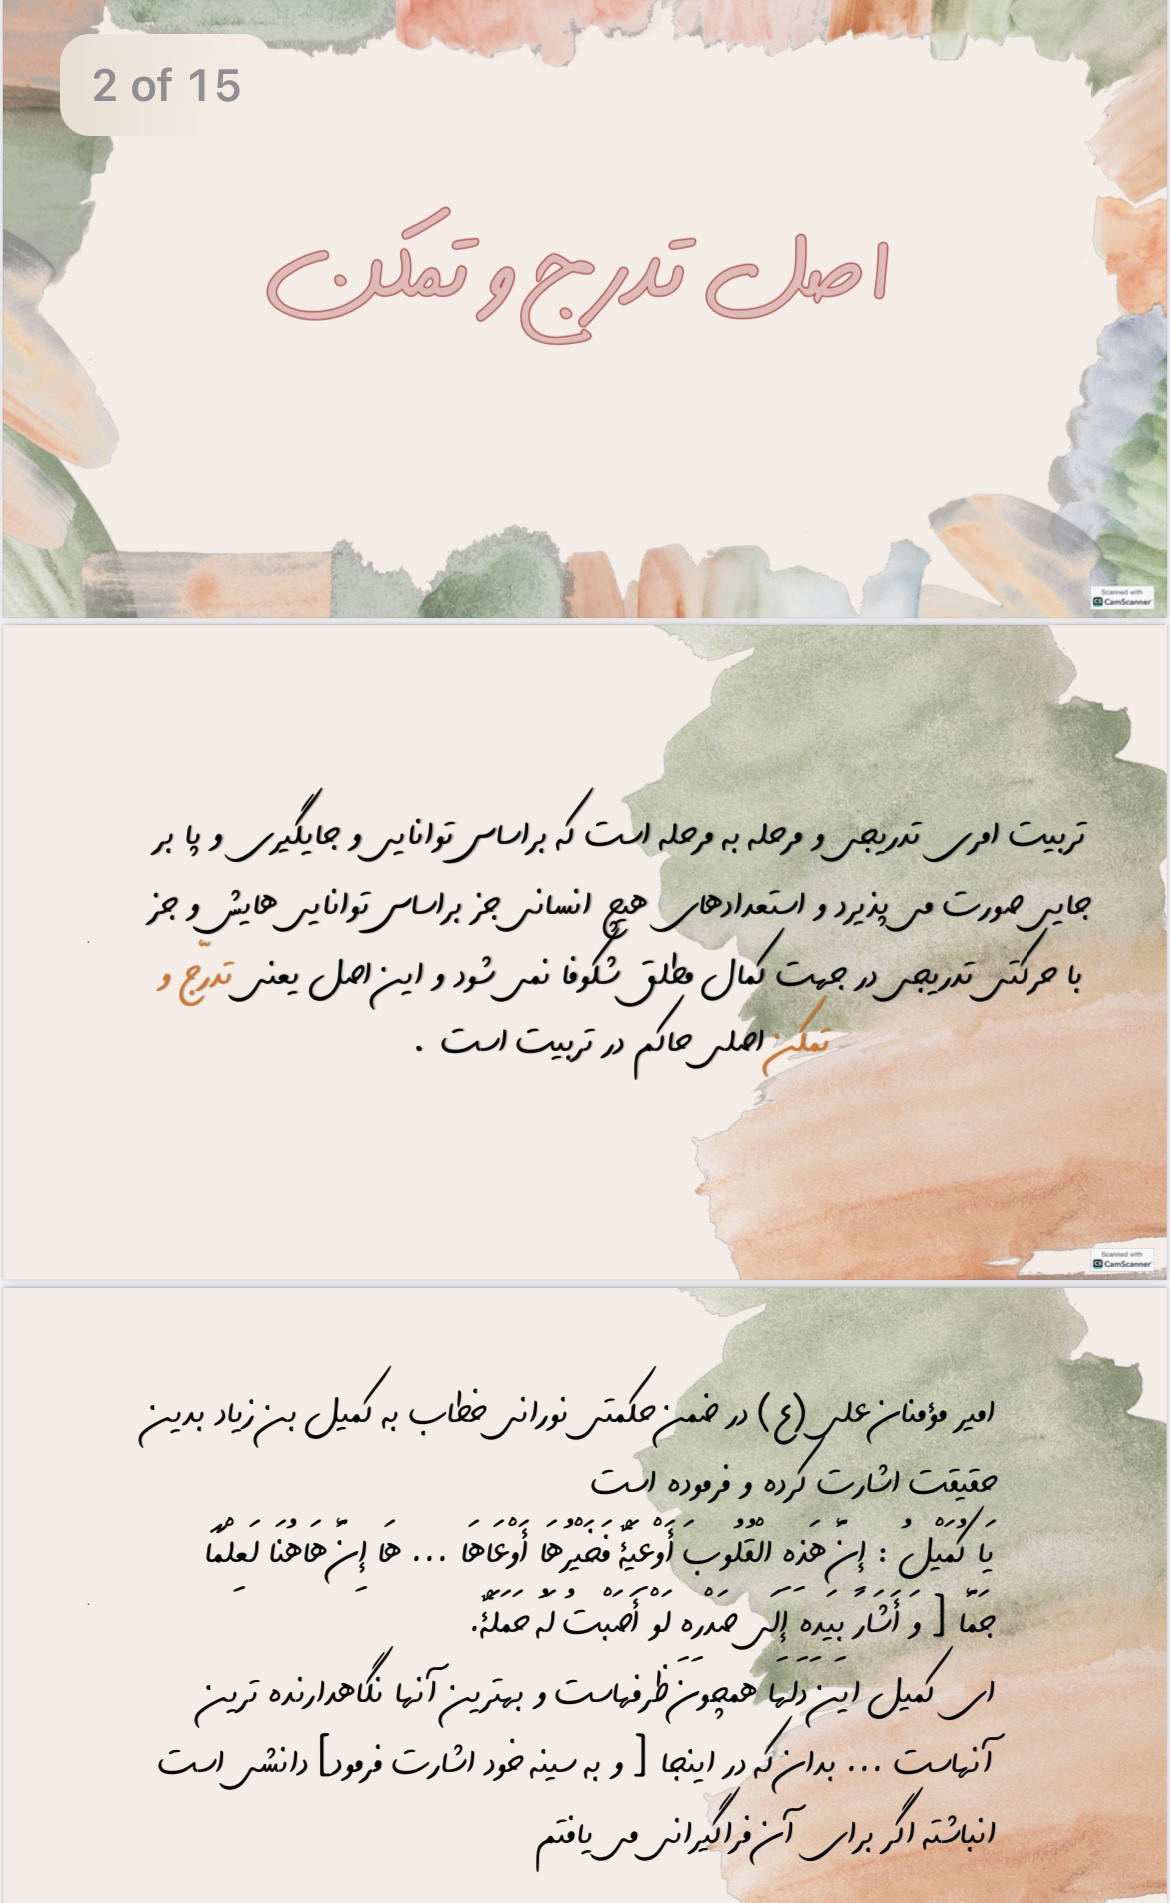 2 of 15
اصل تدرج و تمکن
Scanned with
CS CamScanner
تربیت امری تدریجی و مرحله به مرحله است که براساس توانایی و جایگیری و پا بر
جایی صورت می پذیرد و استعدادهای هیچ انسانی جز براساس توانایی هایش و جز
با حرکتی تدریجی در جهت کمال مطلق شکوفا نمی شود و این اصل یعنی تدرّج و
تمکن اصلی حاکم در تربیت است .
Scanned with
CS CamScanner
امیر مؤمنان علی (ع) در ضمن حکمتی نورانی خطاب به کمیل بن زیاد بدین
حقیقت اشارت کرده و فرموده است
یَا کُمَیْلُ : إِنَّ هَذِهِ الْقُلُوبَ أَوْعِیَةٌ فَخَیْرُهَا أَوْعَاهَا ... هَا إِنَّ هَاهُنَا لَعِلْمًا
جَمًّا [ وَ أَشَارَ بِیَدِهِ إِلَى صَدْرِهِ لَوْ أَصَبْتُ لَهُ حَمَلَةً.
ای کمیل این دلها همچون ظرفهاست و بهترین آنها نگاهدارنده ترین
آنهاست ... بدان که در اینجا [ و به سینه خود اشارت فرمود] دانشی است
انباشته اگر برای آن فراگیرانی می یافتم